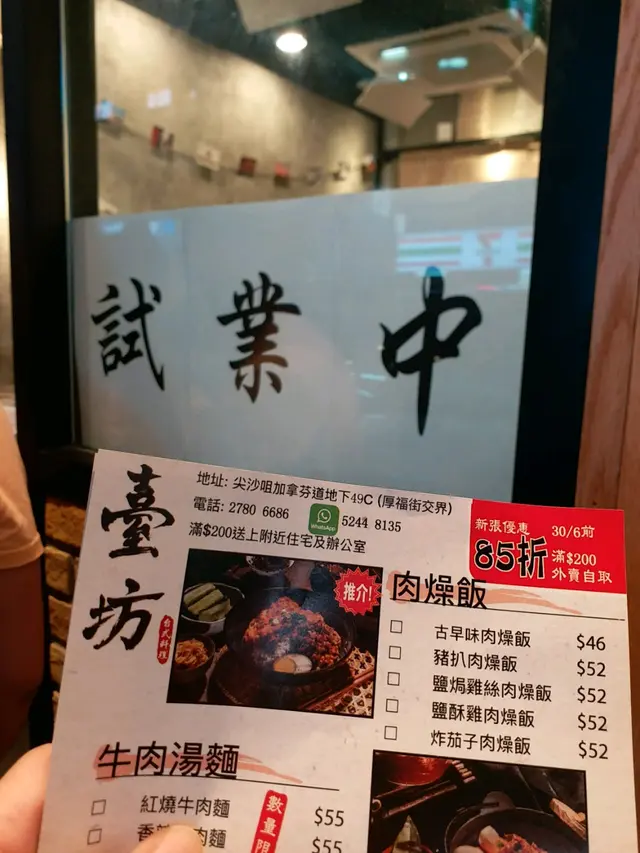 試業中
臺坊
台式料理
地址: 尖沙咀加拿芬道地下49C (厚福街交界)
電話: 2780 6686 WhatsApp 5244 8135
滿$200送上附近住宅及辦公室
新張優惠 30/6前
85折 滿$200
外賣自取
推介!
肉燥飯
古早味肉燥飯 $46
豬扒肉燥飯 $52
鹽焗雞絲肉燥飯 $52
鹽酥雞肉燥飯 $52
炸茄子肉燥飯 $52
牛肉湯麵
紅燒牛肉麵 $55
香 肉麵 $55
數量限